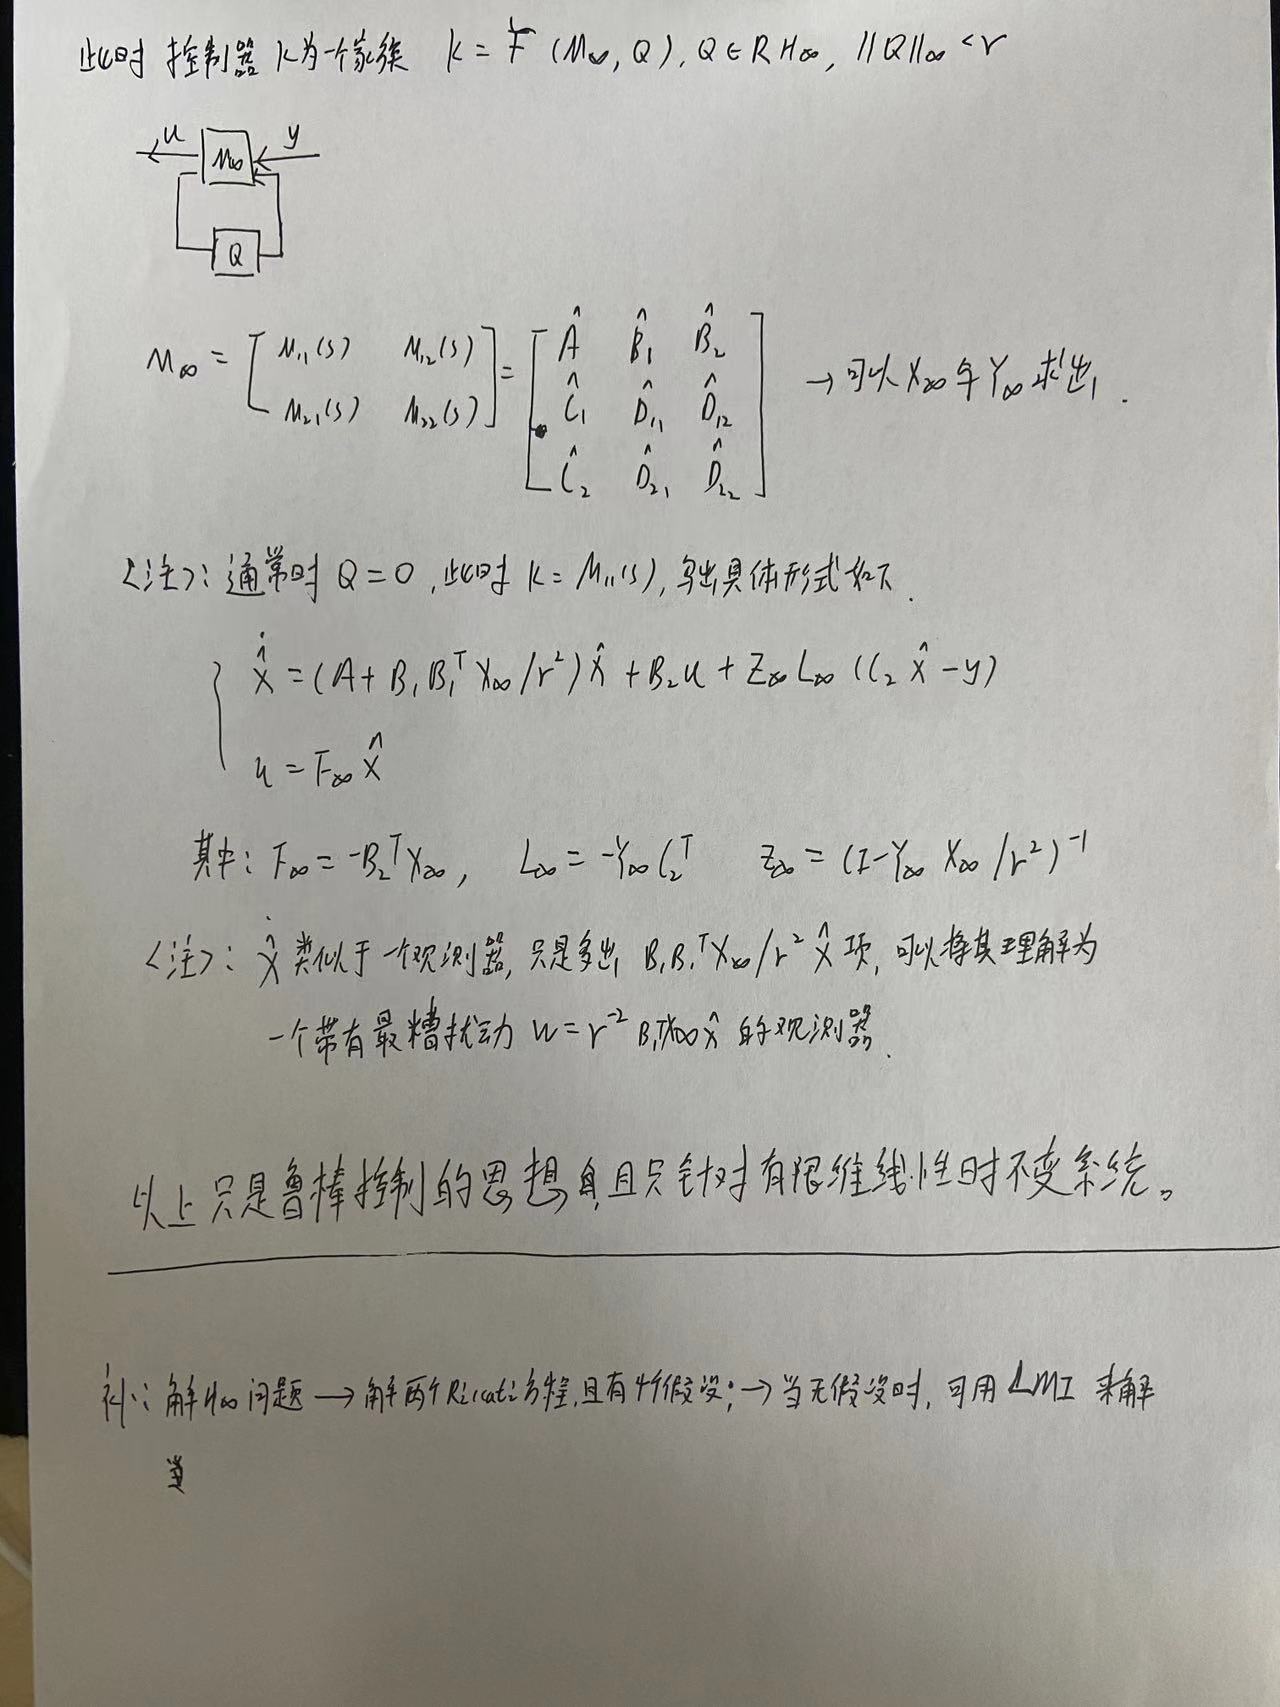 此时 控制器 K为一个家族 K = F (M∞, Q), Q ∈ RH∞, ||Q||∞ < r
u M∞ y
Q
M∞ = [ M₁₁(s) M₁₂(s) ; M₂₁(s) M₂₂(s) ] = [ Â B̂₁ B̂₂ ; Ĉ₁ D̂₁₁ D̂₁₂ ; Ĉ₂ D̂₂₁ D̂₂₂ ] → 可以 X∞ 与 Y∞ 求出.
<注>: 通常时 Q = 0, 此时 K = M₁₁(s), 写出具体形式如下.
ẋ̂ = (A + B₁B₁ᵀX∞/r²)x̂ + B₂u + Z∞L∞(C₂x̂ - y)
u = F∞x̂
其中: F∞ = -B₂ᵀX∞, L∞ = -Y∞C₂ᵀ Z∞ = (I - Y∞X∞/r²)⁻¹
<注>: ẋ̂ 类似于一个观测器, 只是多出 B₁B₁ᵀX∞/r² x̂ 项, 可以将其理解为
一个带有最糟扰动 w = r⁻² B₁ᵀX∞x̂ 的观测器.
以上只是鲁棒控制的思想,且只针对有限维线性时不变系统。
补: 解H∞问题 → 解两个Riccati方程,且有4个假设; → 当无假设时, 可用 LMI 来解